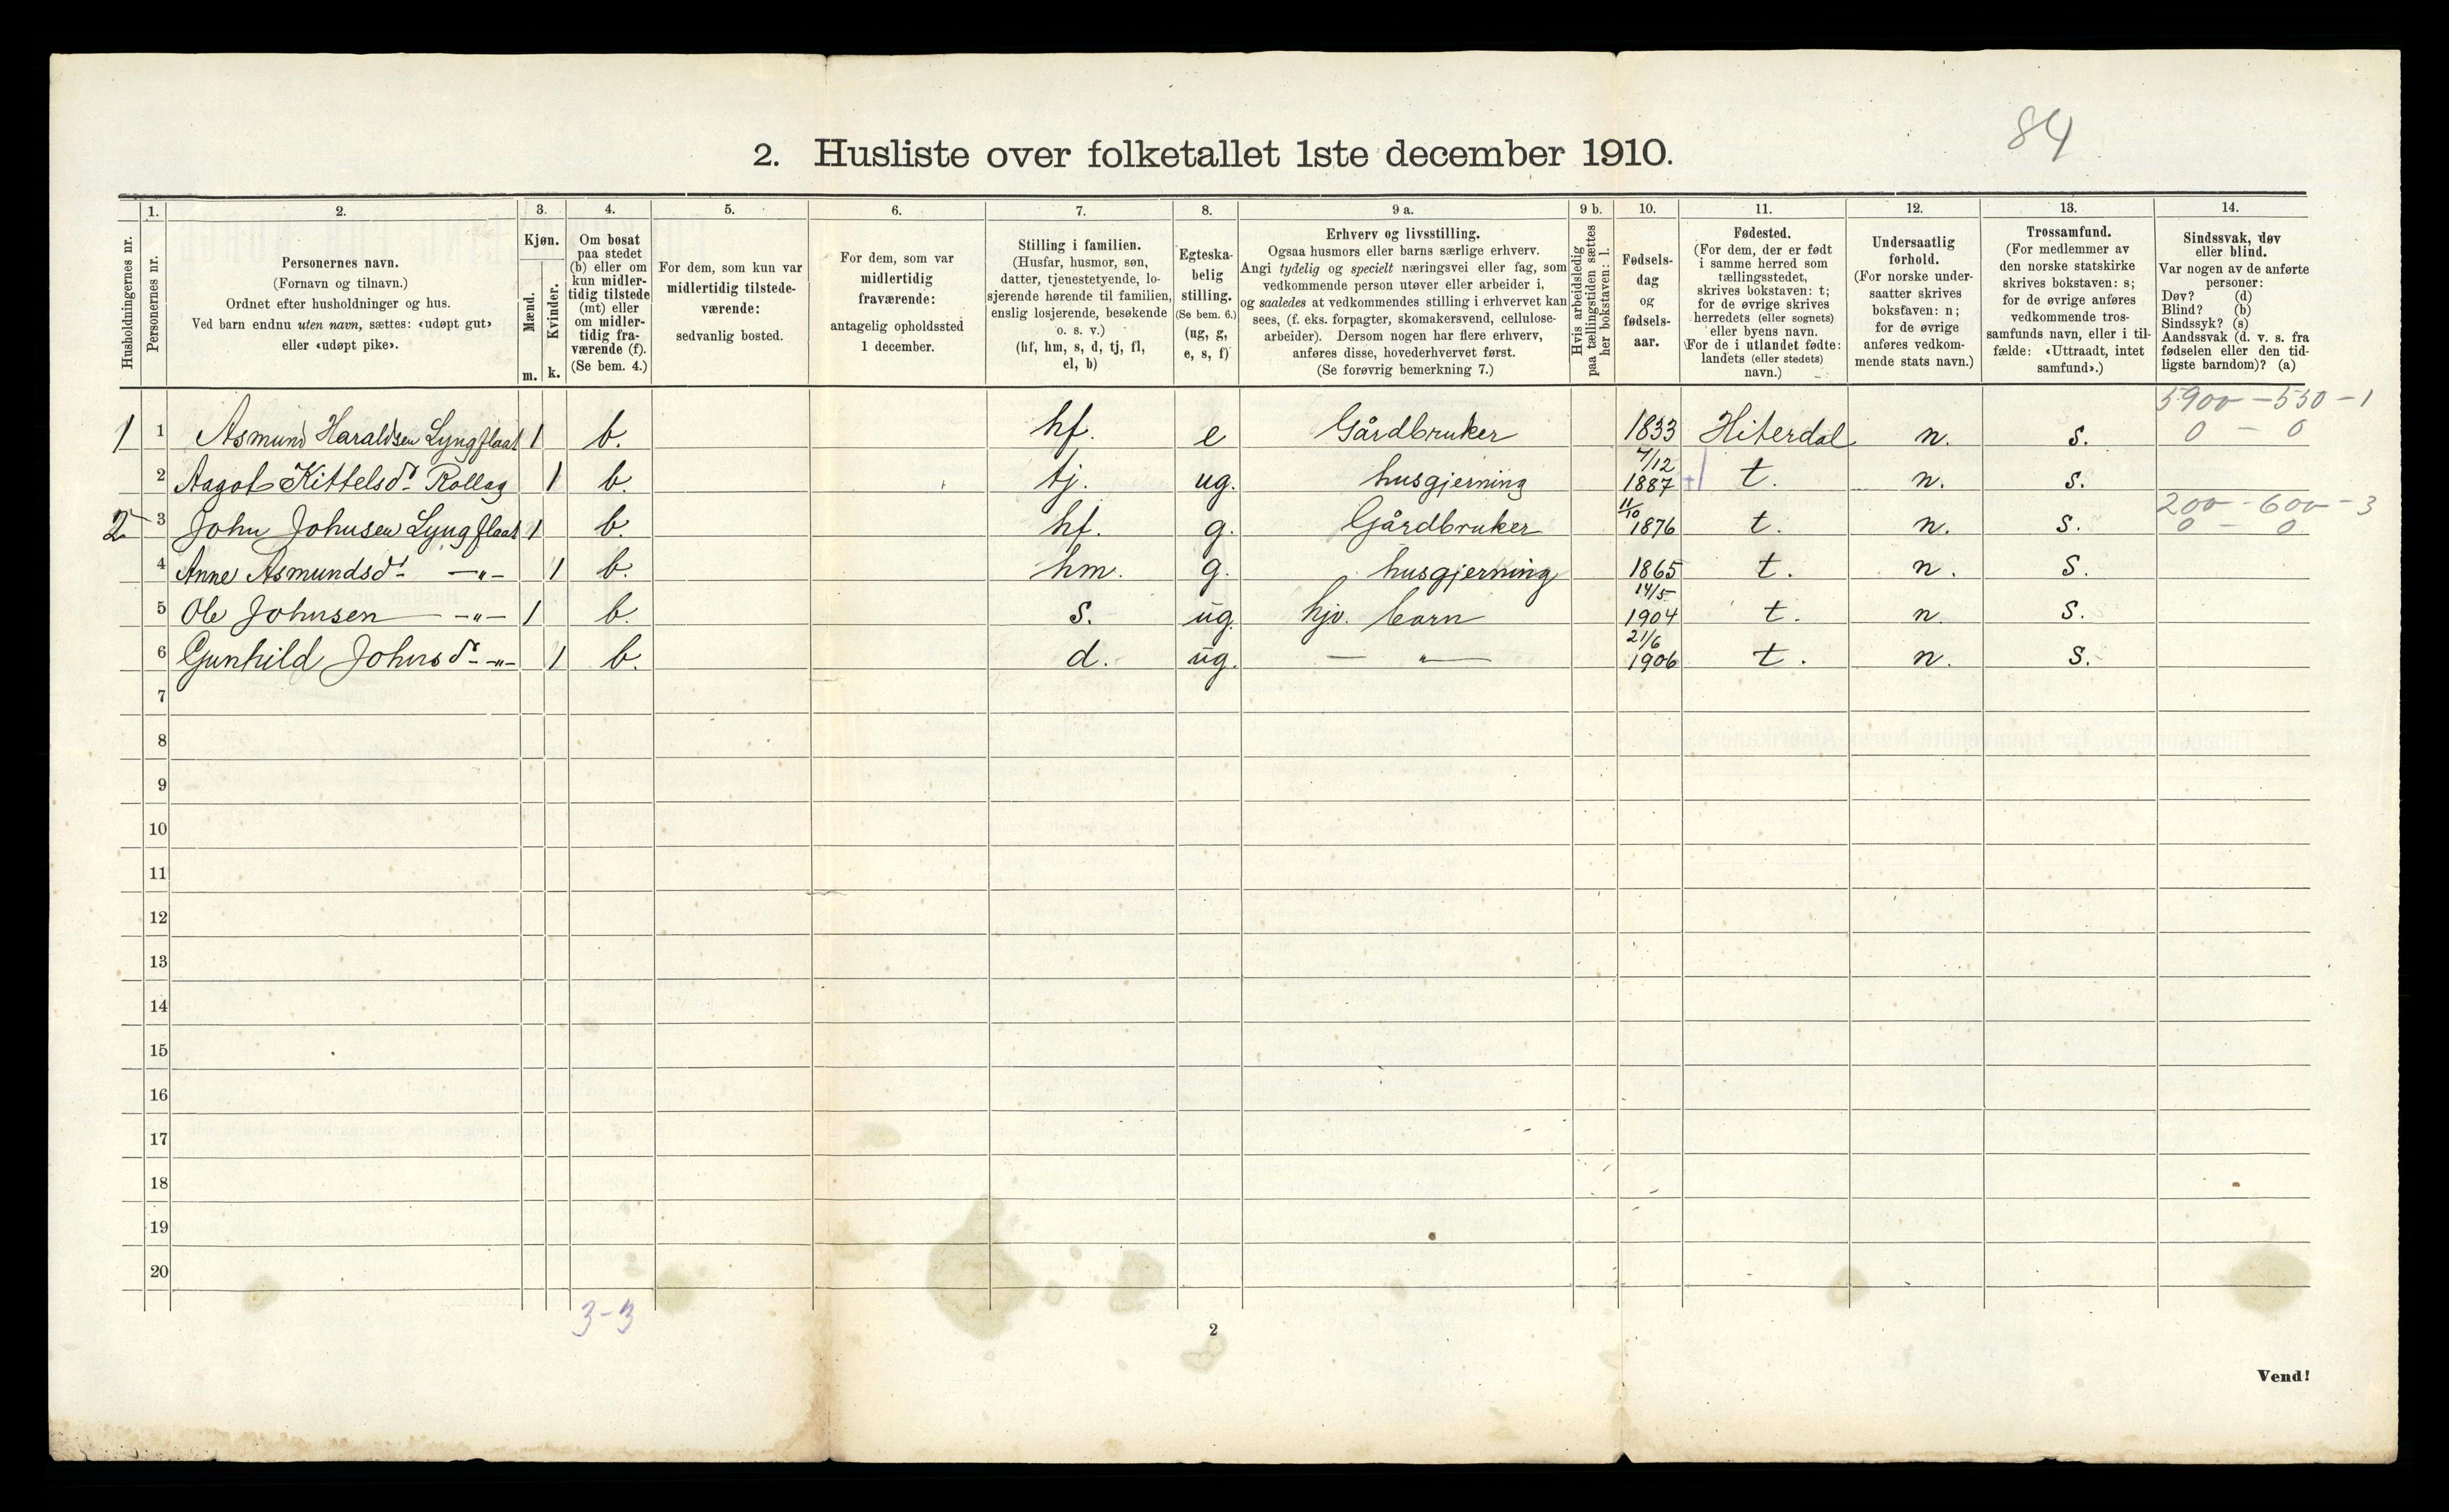 84
2. Husliste over folketallet 1ste december 1910.
1. 2. 3. 4. 5. 6. 7. 8. 9 a. 9 b. 10. 11. 12. 13. 14.
Husholdningernes nr.
Personernes nr.
Personernes navn.
(Fornavn og tilnavn.)
Ordnet efter husholdninger og hus.
Ved barn endnu uten navn, sættes: «udøpt gut»
eller «udøpt pike».
Kjøn.
Mænd.
Kvinder.
m. k.
Om bosat
paa stedet
(b) eller om
kun midler-
tidig tilstede
(mt) eller
om midler-
tidig fra-
værende (f).
(Se bem. 4.)
For dem, som kun var
midlertidig tilstede-
værende:
sedvanlig bosted.
For dem, som var
midlertidig
fraværende:
antagelig opholdssted
1 december.
Stilling i familien.
(Husfar, husmor, søn,
datter, tjenestetyende, lo-
sjerende hørende til familien,
enslig losjerende, besøkende
o. s. v.)
(hf, hm, s, d, tj, fl,
el, b)
Egteska-
belig
stilling.
(Se bem. 6.)
(ug, g,
e, s, f)
Erhverv og livsstilling.
Ogsaa husmors eller barns særlige erhverv.
Angi tydelig og specielt næringsvei eller fag, som
vedkommende person utøver eller arbeider i,
og saaledes at vedkommendes stilling i erhvervet kan
sees, (f. eks. forpagter, skomakersvend, cellulose-
arbeider). Dersom nogen har flere erhverv,
anføres disse, hovederhvervet først.
(Se forøvrig bemerkning 7.)
Hvis arbeidsledig
paa tællingstiden sættes
her bokstaven: l.
Fødsels-
dag
og
fødsels-
aar.
Fødested.
(For dem, der er født
i samme herred som
tællingsstedet,
skrives bokstaven: t;
for de øvrige skrives
herredets (eller sognets)
eller byens navn.
For de i utlandet fødte:
landets (eller stedets)
navn.)
Undersaatlig
forhold.
(For norske under-
saatter skrives
bokstaven: n;
for de øvrige
anføres vedkom-
mende stats navn.)
Trossamfund.
(For medlemmer av
den norske statskirke
skrives bokstaven: s;
for de øvrige anføres
vedkommende tros-
samfunds navn, eller i til-
fælde: «Uttraadt, intet
samfund».)
Sindssvak, døv
eller blind.
Var nogen av de anførte
personer:
Døv? (d)
Blind? (b)
Sindssyk? (s)
Aandssvak (d. v. s. fra
fødselen eller den tid-
ligste barndom)? (a)
5900 - 550 - 1
1 1 Asmund Haraldsen Lyngflaat 1 b. hf. e Gårdbruker 1833 Hiterdal n. s. 0 - 0
7/12
2 Aagot Kittelsdr Rollag 1 b. tj. ug. husgjerning 1887 t. n. s.
11/10 200 - 600 - 3
2 3 John Johnsen Lyngflaat 1 b. hf. g. Gårdbruker 1876 t. n. s. 0 - 0
4 Anne Asmundsdr -"- 1 b. hm. g. husgjerning 1865 t. n. s.
14/5
5 Ole Johnsen -"- 1 b. s. ug. hjv. barn 1904 t. n. s.
21/6
6 Gunhild Johnsdr -"- 1 b. d. ug. - " - 1906 t. n. s.
7
8
9
10
11
12
13
14
15
16
17
18
19
20
3-3
2
Vend!